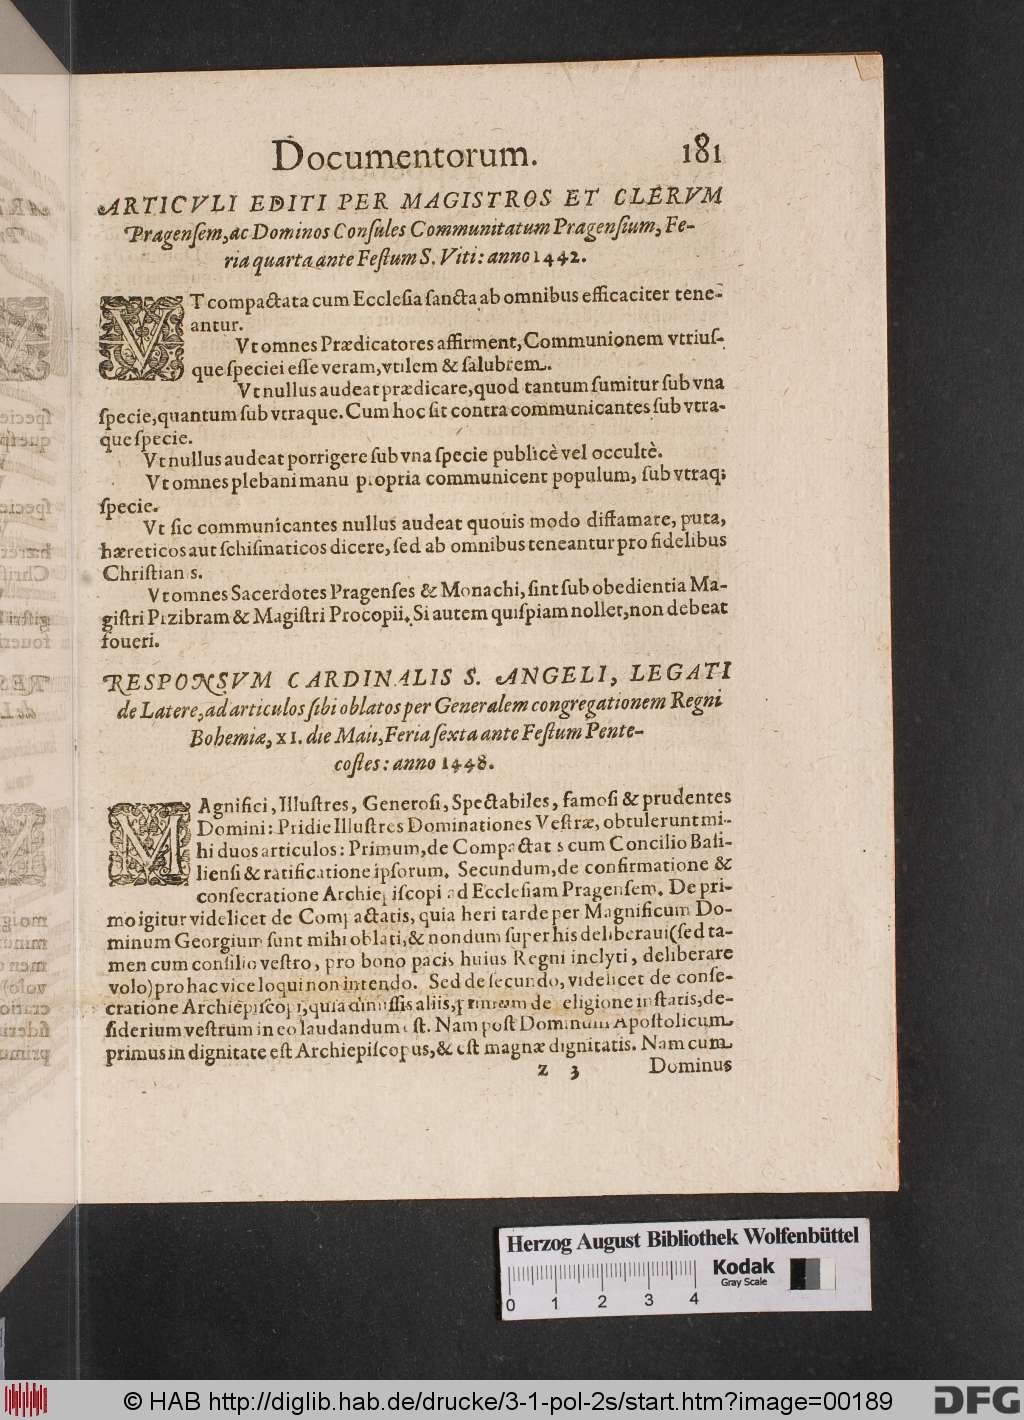 Documentorum. 181
ARTICVLI EDITI PER MAGISTROS ET CLERVM
Pragensem, ac Dominos Consules Communitatum Pragensium, Fe-
ria quarta ante Festum S. Viti: anno 1442.
VT compactata cum Ecclesia sancta ab omnibus efficaciter tene-
antur.
Vt omnes Prædicatores affirment, Communionem vtrius-
que speciei esse veram, vtilem & salubrem.
Vt nullus audeat prædicare, quod tantum sumitur sub vna
specie, quantum sub vtraque. Cum hoc sit contra communicantes sub vtra-
que specie.
Vt nullus audeat porrigere sub vna specie publicè vel occultè.
Vt omnes plebani manu propria communicent populum, sub vtraq;
specie.
Vt sic communicantes nullus audeat quouis modo diffamare, puta,
hæreticos aut schismaticos dicere, sed ab omnibus teneantur pro fidelibus
Christian s.
Vt omnes Sacerdotes Pragenses & Monachi, sint sub obedientia Ma-
gistri Przibram & Magistri Procopii. Si autem quispiam nollet, non debeat
foueri.
RESPONSVM CARDINALIS S. ANGELI, LEGATI
de Latere, ad articulos sibi oblatos per Generalem congregationem Regni
Bohemiæ, XI. die Maii, Feria sexta ante Festum Pente-
costes: anno 1448.
MAgnifici, Illustres, Generosi, Spectabiles, famosi & prudentes
Domini: Pridie Illustres Dominationes Vestræ, obtulerunt mi-
hi duos articulos: Primum, de Compactat s cum Concilio Basi-
liensi & ratificatione ipsorum. Secundum, de confirmatione &
consecratione Archiepiscopi ad Ecclesiam Pragensem. De pri-
mo igitur videlicet de Compactatis, quia heri tarde per Magnificum Do-
minum Georgium sunt mihi oblati, & nondum super his deliberaui (sed ta-
men cum consilio vestro, pro bono pacis huius Regni inclyti, deliberare
volo) pro hac vice loqui non intendo. Sed de secundo, videlicet de conse-
cratione Archiepiscopi, quia dimissis aliis, primum de eligione instatis, de-
siderium vestrum in eo laudandum est. Nam post Dominum Apostolicum
primus in dignitate est Archiepiscopus, & est magnæ dignitatis. Nam cum
Z 3 Dominus
Herzog August Bibliothek Wolfenbüttel
Kodak
Gray Scale
0 1 2 3 4
© HAB http://diglib.hab.de/drucke/3-1-pol-2s/start.htm?image=00189
DFG